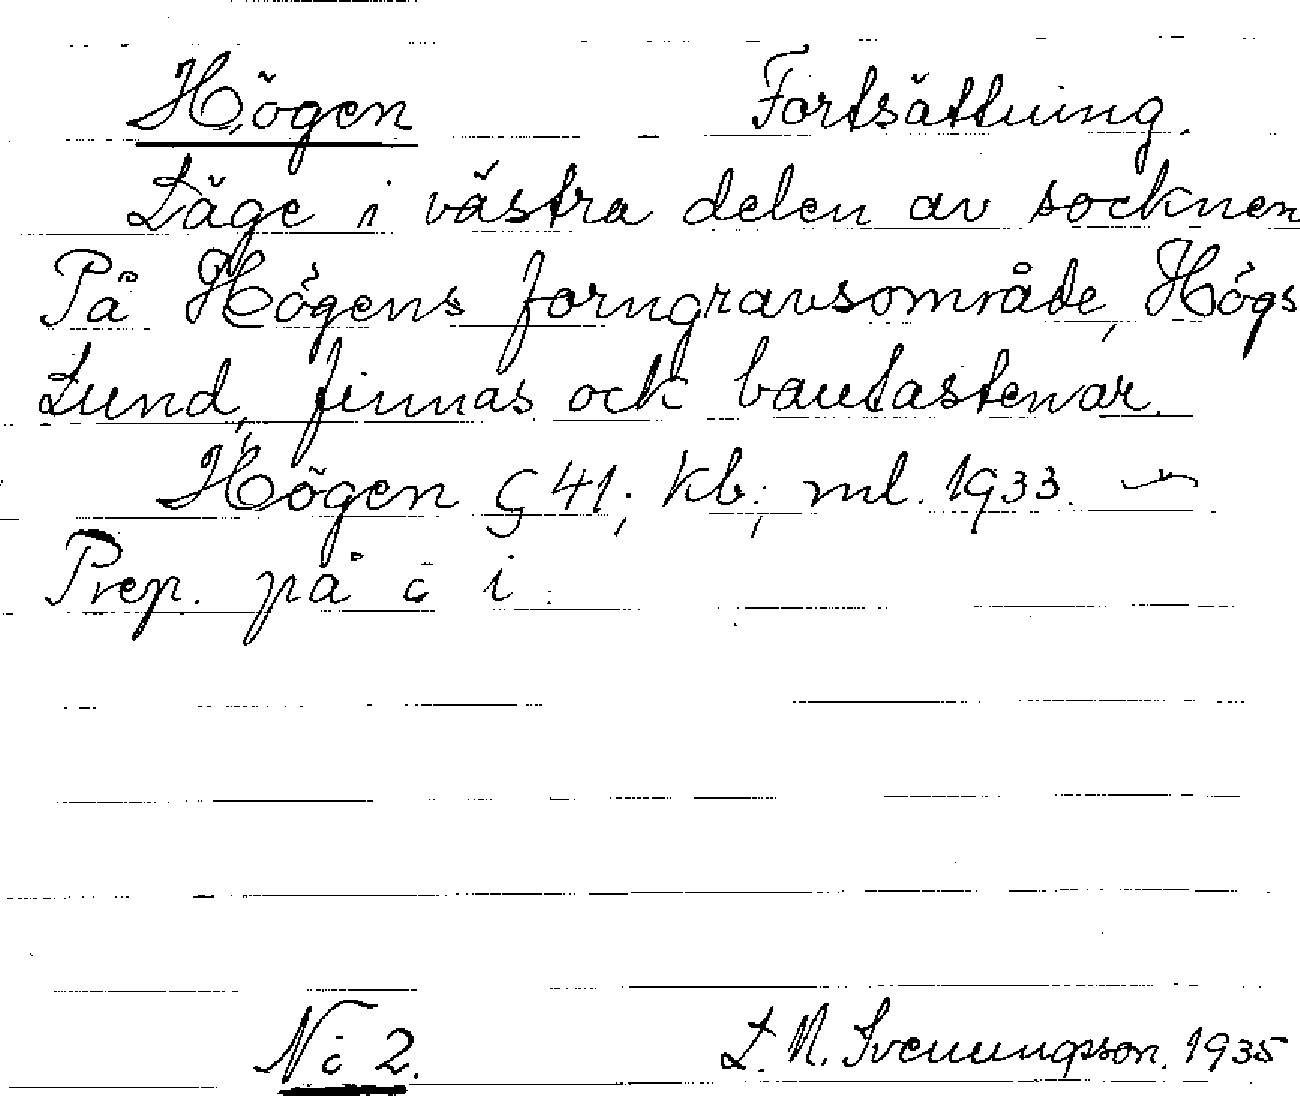 Högen Fortsättning.
Läge i västra delen av socknen
På Högens forngravsområde, Högs
Lund, finnas ock bautastenar.
Högen G 41; kb.; ml. 1933. —
Prep. på o i.
No 2. L. N. Svenungsson. 1935